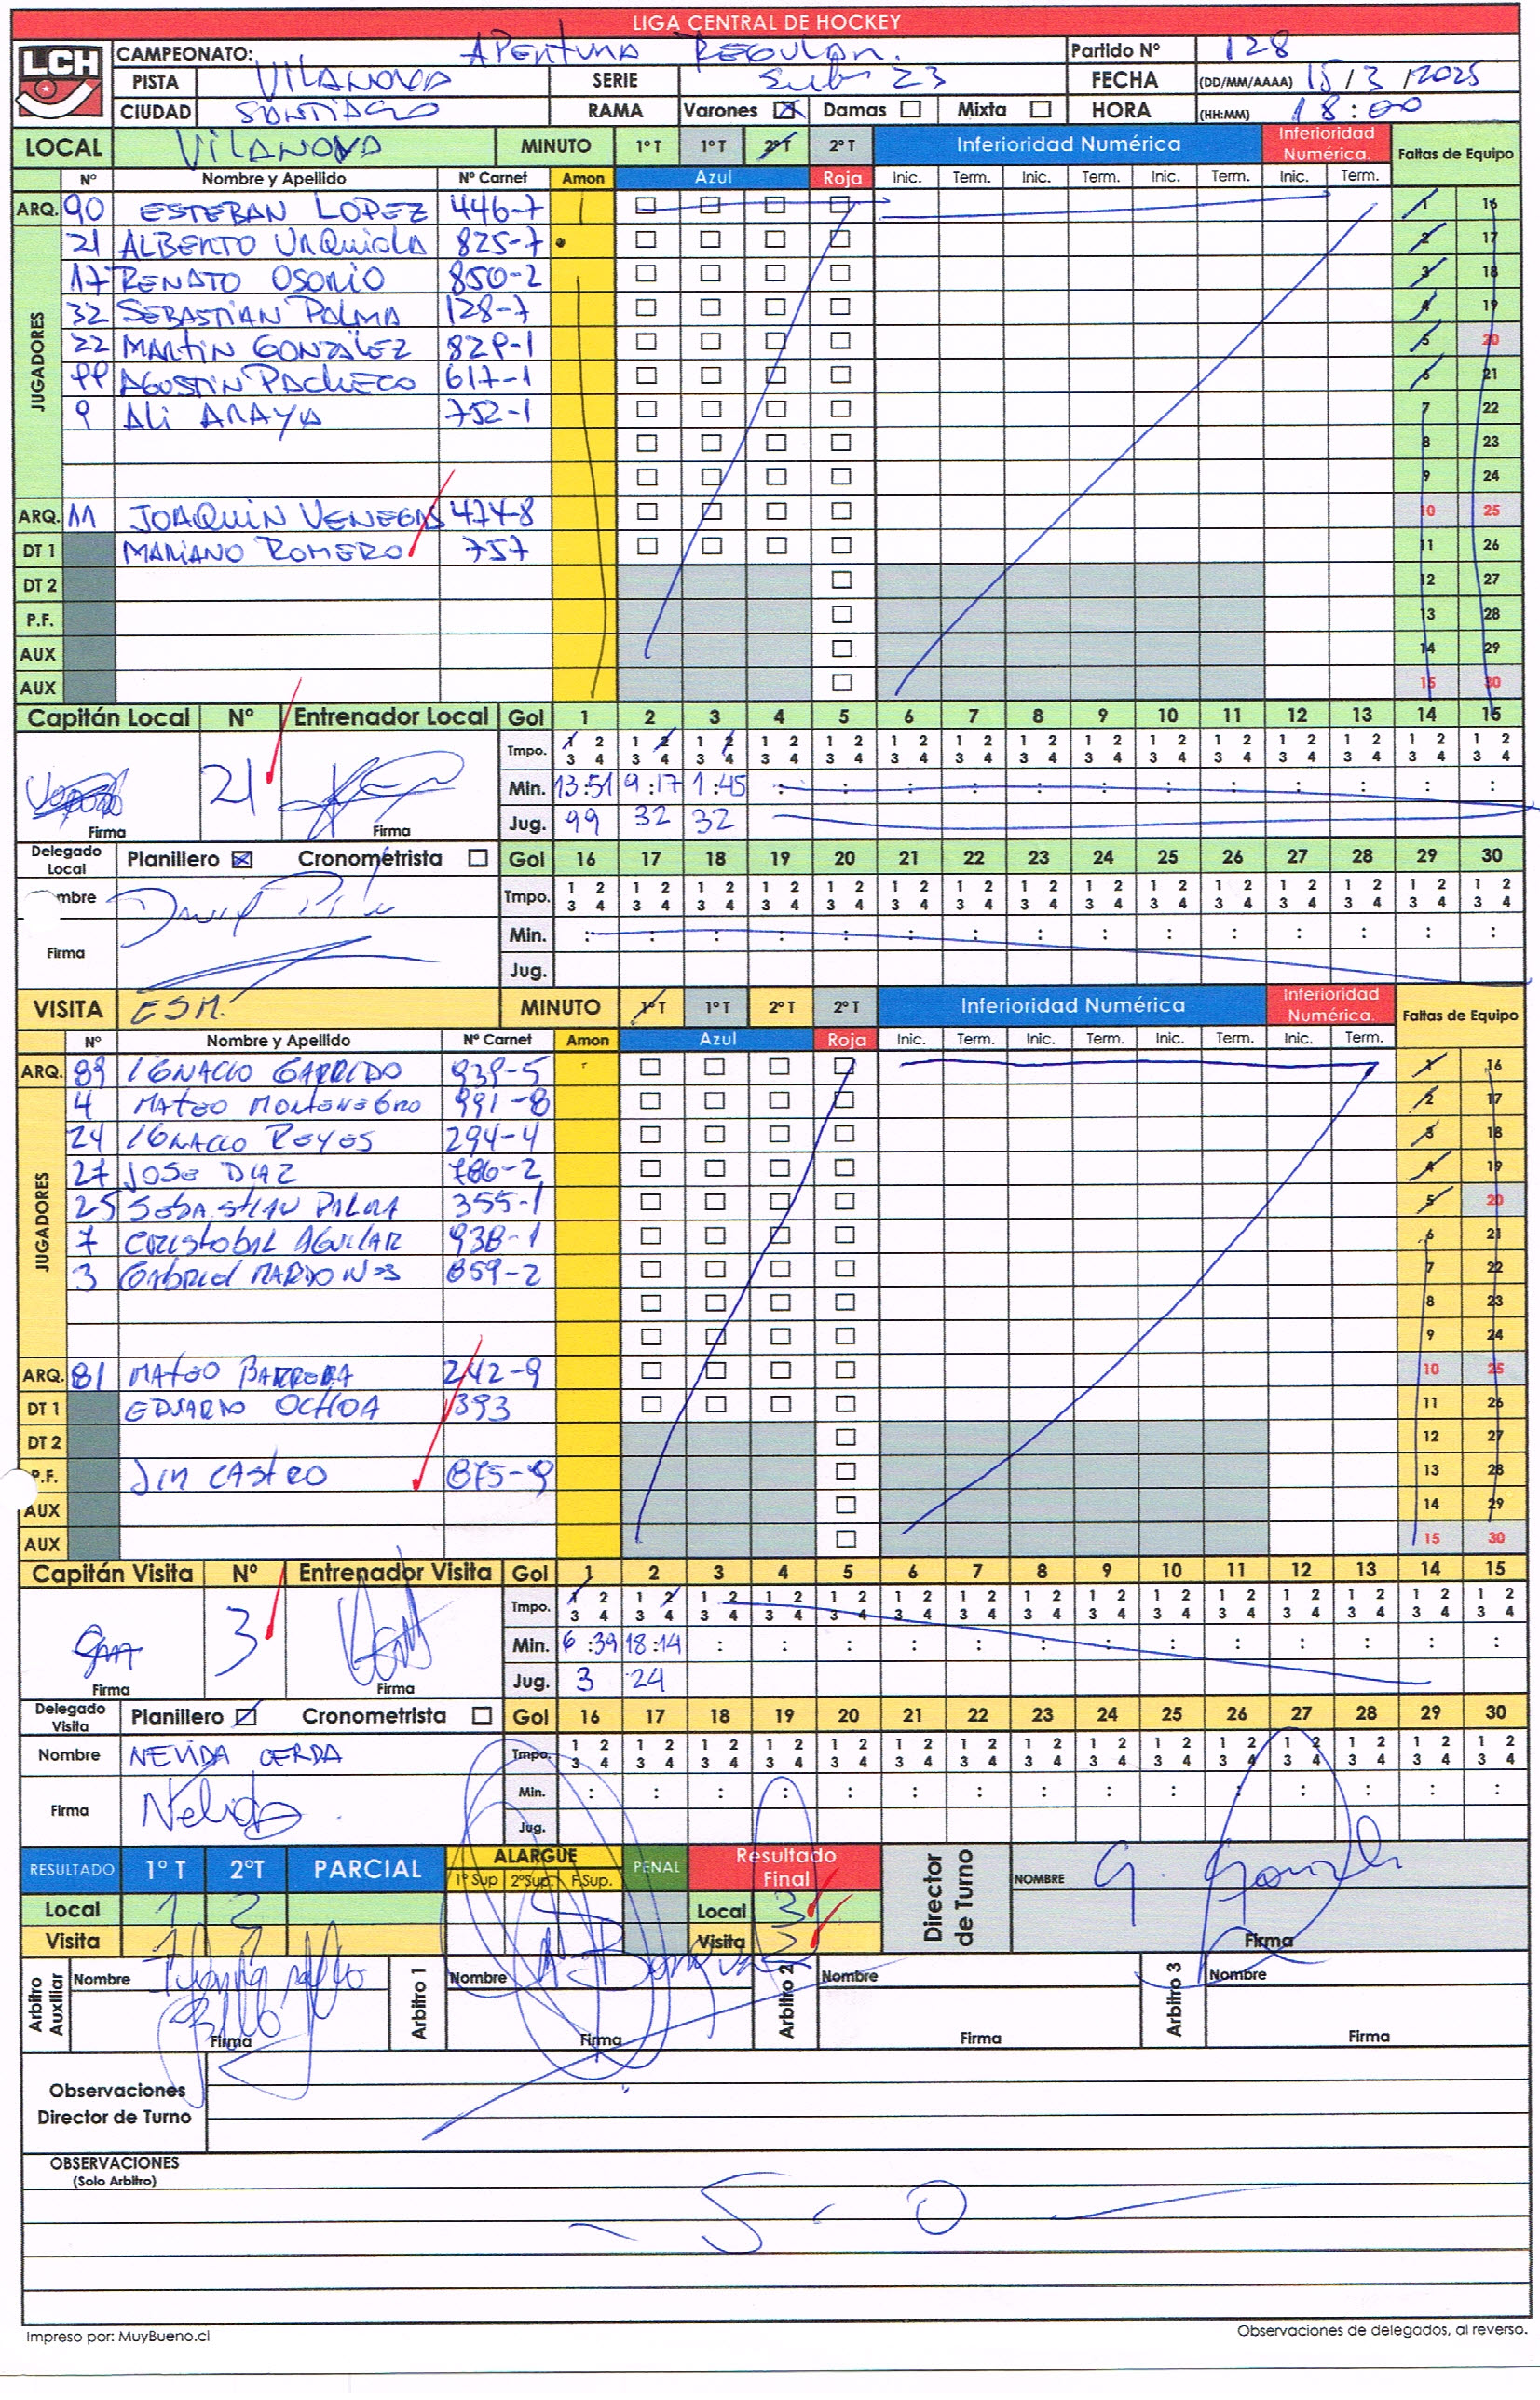 LIGA CENTRAL DE HOCKEY
LCH
CAMPEONATO: APERTURA REGULAR. Partido Nº 128
PISTA VILANOVA SERIE Sub 23 FECHA (DD/MM/AAAA) 15/3/2025
CIUDAD SANTIAGO RAMA Varones Damas Mixta HORA (HH:MM) 18:00
LOCAL VILANOVA MINUTO 1º T 1º T 2º T 2º T Inferioridad Numérica Inferioridad Numérica. Faltas de Equipo
Nº Nombre y Apellido Nº Carnet Amon Azul Roja Inic. Term. Inic. Term. Inic. Term. Inic. Term.
ARQ. 90 ESTEBAN LOPEZ 446-7 1 16
JUGADORES
21 ALBERTO URQUIOLA 825-7 2 17
17 RENATO OSORIO 850-2 3 18
32 SEBASTIAN PALMA 128-7 4 19
22 MARTIN GONZÁLEZ 829-1 5 20
99 AGUSTIN PACHECO 617-1 6 21
9 ALI ARAYA 752-1 7 22
8 23
9 24
ARQ. 11 JOAQUIN VENEGAS 474-8 10 25
DT 1 MARIANO ROMERO 757 11 26
DT 2 12 27
P.F. 13 28
AUX 14 29
AUX 15 30
Capitán Local Nº Entrenador Local Gol 1 2 3 4 5 6 7 8 9 10 11 12 13 14 15
Tmpo. 1 2 3 4 1 2 3 4 1 2 3 4 1 2 3 4 1 2 3 4 1 2 3 4 1 2 3 4 1 2 3 4 1 2 3 4 1 2 3 4 1 2 3 4 1 2 3 4 1 2 3 4 1 2 3 4 1 2 3 4
21 Min. 13:51 9:17 1:45 : : : : : : : : : : : :
Firma Firma Jug. 99 32 32
Delegado Local Planillero Cronometrista Gol 16 17 18 19 20 21 22 23 24 25 26 27 28 29 30
mbre Tmpo. 1 2 3 4 1 2 3 4 1 2 3 4 1 2 3 4 1 2 3 4 1 2 3 4 1 2 3 4 1 2 3 4 1 2 3 4 1 2 3 4 1 2 3 4 1 2 3 4 1 2 3 4 1 2 3 4 1 2 3 4
Firma Min. : : : : : : : : : : : : : : :
Jug.
VISITA ESM. MINUTO 1º T 1º T 2º T 2º T Inferioridad Numérica Inferioridad Numérica. Faltas de Equipo
Nº Nombre y Apellido Nº Carnet Amon Azul Roja Inic. Term. Inic. Term. Inic. Term. Inic. Term.
ARQ. 89 IGNACIO GARRIDO 939-5 1 16
JUGADORES
4 MATEO MONTENEGRO 991-8 2 17
24 IGNACIO REYES 294-4 3 18
27 JOSE DIAZ 786-2 4 19
25 SEBASTIAN PALMA 355-1 5 20
7 CRISTOBAL AGUILAR 938-1 6 21
3 GABRIEL MARDONES 859-2 7 22
8 23
9 24
ARQ. 81 MATEO BARRERA 242-9 10 25
DT 1 EDUARDO OCHOA 393 11 26
DT 2 12 27
P.F. JIM CASTRO 875-9 13 28
AUX 14 29
AUX 15 30
Capitán Visita Nº Entrenador Visita Gol 1 2 3 4 5 6 7 8 9 10 11 12 13 14 15
Tmpo. 1 2 3 4 1 2 3 4 1 2 3 4 1 2 3 4 1 2 3 4 1 2 3 4 1 2 3 4 1 2 3 4 1 2 3 4 1 2 3 4 1 2 3 4 1 2 3 4 1 2 3 4 1 2 3 4 1 2 3 4
3 Min. 6:39 18:14 : : : : : : : : : : : : :
Firma Firma Jug. 3 24
Delegado Visita Planillero Cronometrista Gol 16 17 18 19 20 21 22 23 24 25 26 27 28 29 30
Nombre NELIDA CERDA Tmpo. 1 2 3 4 1 2 3 4 1 2 3 4 1 2 3 4 1 2 3 4 1 2 3 4 1 2 3 4 1 2 3 4 1 2 3 4 1 2 3 4 1 2 3 4 1 2 3 4 1 2 3 4 1 2 3 4 1 2 3 4
Firma Nelida Min. : : : : : : : : : : : : : : :
Jug.
RESULTADO 1º T 2ºT PARCIAL ALARGUE 1º Sup 2ºSup. F.Sup. PENAL Resultado Final Director de Turno NOMBRE G.
Local 1 2 Local 3
Visita 1 Visita Firma
Arbitro Auxiliar Nombre Arbitro 1 Nombre Arbitro 2 Nombre Arbitro 3 Nombre
Firma Firma Firma Firma
Observaciones
Director de Turno
OBSERVACIONES
(Solo Arbitro)
S - O
Impreso por: MuyBueno.cl Observaciones de delegados, al reverso.